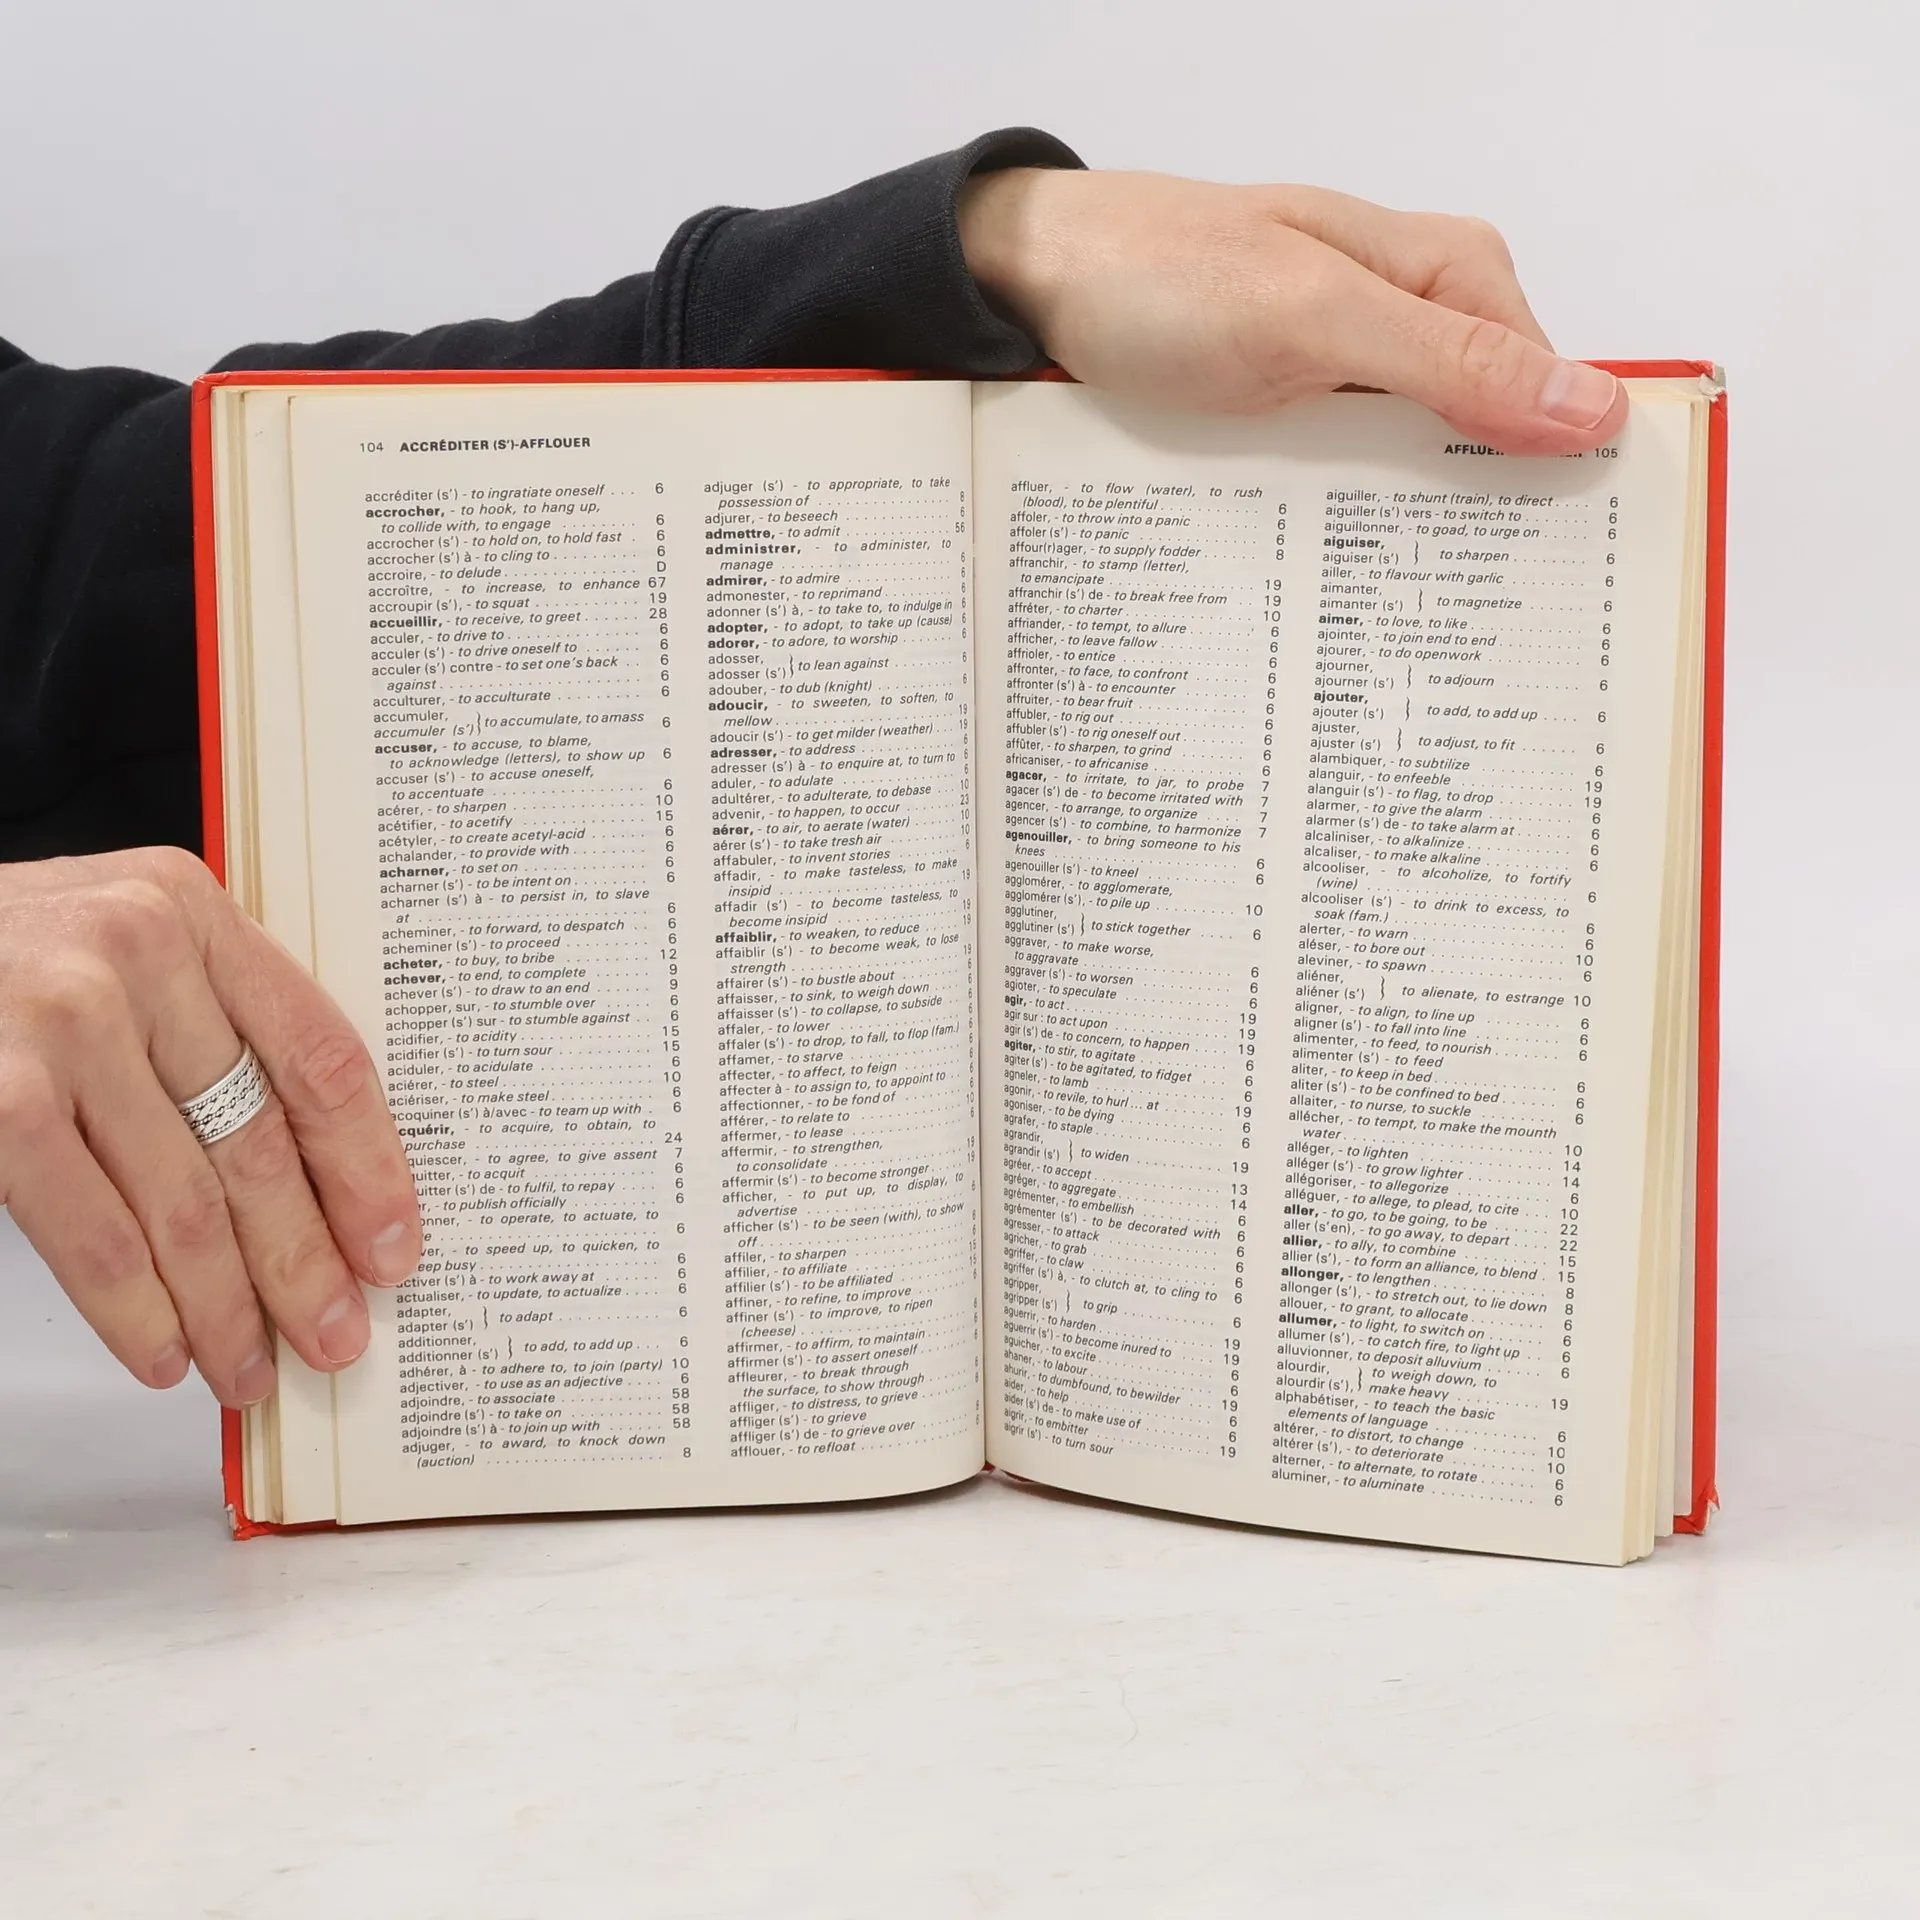 104 ACCRÉDITER (S')-AFFLOUER
accréditer (s') - to ingratiate oneself . . . 6
accrocher, - to hook, to hang up,
to collide with, to engage . . . . . . . . 6
accrocher (s') - to hold on, to hold fast . 6
accrocher (s') à - to cling to . . . . . . . . . 6
accroire, - to delude . . . . . . . . . . . . . D
accroître, - to increase, to enhance 67
accroupir (s'), - to squat . . . . . . . . . . 19
accueillir, - to receive, to greet . . . . . . 28
acculer, - to drive to . . . . . . . . . . . . . 6
acculer (s') - to drive oneself to . . . . . . 6
acculer (s') contre - to set one's back . . 6
against . . . . . . . . . . . . . . . . . . . 6
acculturer, - to acculturate . . . . . . . . . 6
accumuler,
accumuler (s') } to accumulate, to amass 6
accuser, - to accuse, to blame,
to acknowledge (letters), to show up 6
accuser (s') - to accuse oneself,
to accentuate . . . . . . . . . . . . . . . 6
acérer, - to sharpen . . . . . . . . . . . . . 10
acétifier, - to acetify . . . . . . . . . . . . . 15
acétyler, - to create acetyl-acid . . . . . . 6
achalander, - to provide with . . . . . . . . 6
acharner, - to set on . . . . . . . . . . . . . 6
acharner (s') - to be intent on . . . . . . . . 6
acharner (s') à - to persist in, to slave
at . . . . . . . . . . . . . . . . . . . . . 6
acheminer, - to forward, to despatch . . 6
acheminer (s') - to proceed . . . . . . . . 6
acheter, - to buy, to bribe . . . . . . . . . . 12
achever, - to end, to complete . . . . . . 9
achever (s') - to draw to an end . . . . . . 9
achopper, sur, - to stumble over . . . . . 6
achopper (s') sur - to stumble against . . 6
acidifier, - to acidity . . . . . . . . . . . . . 15
acidifier (s') - to turn sour . . . . . . . . . . 15
aciduler, - to acidulate . . . . . . . . . . . . 6
aciérer, - to steel . . . . . . . . . . . . . . . 10
aciériser, - to make steel . . . . . . . . . . . 6
acoquiner (s') à/avec - to team up with . 6
cquérir, - to acquire, to obtain, to
purchase . . . . . . . . . . . . . . . . . . 24
quiescer, - to agree, to give assent 7
uitter, - to acquit . . . . . . . . . . . . . 6
uitter (s') de - to fulfil, to repay . . . . . 6
er, - to publish officially . . . . . . . . . . 6
onner, - to operate, to actuate, to
e . . . . . . . . . . . . . . . . . . . . . 6
ver, - to speed up, to quicken, to
eep busy . . . . . . . . . . . . . . . . . . 6
activer (s') à - to work away at . . . . . . . 6
actualiser, - to update, to actualize . . . . 6
adapter,
adapter (s') } to adapt . . . . . . . . . . 6
additionner,
additionner (s') } to add, to add up . . . 6
adhérer, à - to adhere to, to join (party) 10
adjectiver, - to use as an adjective . . . . 6
adjoindre, - to associate . . . . . . . . . . 58
adjoindre (s') - to take on . . . . . . . . . . 58
adjoindre (s') à - to join up with . . . . . . 58
adjuger, - to award, to knock down
(auction) . . . . . . . . . . . . . . . . . . 8
adjuger (s') - to appropriate, to take
possession of . . . . . . . . . . . . . . . 8
adjurer, - to beseech . . . . . . . . . . . . . 6
admettre, - to admit . . . . . . . . . . . . . 56
administrer, - to administer, to
manage . . . . . . . . . . . . . . . . . . . 6
admirer, - to admire . . . . . . . . . . . . . 6
admonester, - to reprimand . . . . . . . . 6
adonner (s') à, - to take to, to indulge in 6
adopter, - to adopt, to take up (cause) 6
adorer, - to adore, to worship . . . . . . . 6
adosser,
adosser (s') } to lean against . . . . . . . . 6
adouber, - to dub (knight) . . . . . . . . . . 6
adoucir, - to sweeten, to soften, to
mellow . . . . . . . . . . . . . . . . . . . 19
adoucir (s') - to get milder (weather) . . . 19
adresser, - to address . . . . . . . . . . . . 6
adresser (s') à - to enquire at, to turn to 6
aduler, - to adulate . . . . . . . . . . . . . . 6
adultérer, - to adulterate, to debase . . . 10
advenir, - to happen, to occur . . . . . . . 23
aérer, - to air, to aerate (water) . . . . . . 10
aérer (s') - to take tresh air . . . . . . . . . 10
affabuler, - to invent stories . . . . . . . . 6
affadir, - to make tasteless, to make
insipid . . . . . . . . . . . . . . . . . . . 19
affadir (s') - to become tasteless, to
become insipid . . . . . . . . . . . . . . 19
affaiblir, - to weaken, to reduce . . . . . 19
affaiblir (s') - to become weak, to lose
strength . . . . . . . . . . . . . . . . . . 19
affairer (s') - to bustle about . . . . . . . . 6
affaisser, - to sink, to weigh down . . . . 6
affaisser (s') - to collapse, to subside . . 6
affaler, - to lower . . . . . . . . . . . . . . . 6
affaler (s') - to drop, to fall, to flop (fam.) 6
affamer, - to starve . . . . . . . . . . . . . . 6
affecter, - to affect, to feign . . . . . . . . 6
affecter à - to assign to, to appoint to . . 6
affectionner, - to be fond of . . . . . . . . 6
afférer, - to relate to . . . . . . . . . . . . . 10
affermer, - to lease . . . . . . . . . . . . . . 6
affermir, - to strengthen,
to consolidate . . . . . . . . . . . . . . . 19
affermir (s') - to become stronger . . . . . 19
afficher, - to put up, to display, to
advertise . . . . . . . . . . . . . . . . . . 6
afficher (s') - to be seen (with), to show
off . . . . . . . . . . . . . . . . . . . . . . 6
affiler, - to sharpen . . . . . . . . . . . . . 6
affilier, - to affiliate . . . . . . . . . . . . . 15
affilier (s') - to be affiliated . . . . . . . . . 15
affiner, - to refine, to improve . . . . . . . 6
affiner (s') - to improve, to ripen
(cheese) . . . . . . . . . . . . . . . . . . 6
affirmer, - to affirm, to maintain . . . . . . 6
affirmer (s') - to assert oneself . . . . . . . 6
affleurer, - to break through
the surface, to show through . . . . . . 6
affliger, - to distress, to grieve . . . . . .
affliger (s') - to grieve
affliger (s') de - to grieve over . . . . . .
afflouer, - to refloat . . . . . . . . . . . . .
105
affluer, - to flow (water), to rush
(blood), to be plentiful . . . . . . . . . . 6
affoler, - to throw into a panic . . . . . . . 6
affoler (s') - to panic . . . . . . . . . . . . . 6
affour(r)ager, - to supply fodder . . . . . . 8
affranchir, - to stamp (letter),
to emancipate . . . . . . . . . . . . . . . 19
affranchir (s') de - to break free from . . 19
affréter, - to charter . . . . . . . . . . . . . 10
affriander, - to tempt, to allure . . . . . . . 6
affricher, - to leave fallow . . . . . . . . . . 6
affrioler, - to entice . . . . . . . . . . . . . 6
affronter, - to face, to confront . . . . . . 6
affronter (s') à - to encounter . . . . . . . 6
affruiter, - to bear fruit . . . . . . . . . . . . 6
affubler, - to rig out . . . . . . . . . . . . . 6
affubler (s') - to rig oneself out . . . . . . . 6
affûter, - to sharpen, to grind . . . . . . . 6
africaniser, - to africanise . . . . . . . . . . 6
agacer, - to irritate, to jar, to probe 7
agacer (s') de - to become irritated with 7
agencer, - to arrange, to organize . . . . 7
agencer (s') - to combine, to harmonize 7
agenouiller, - to bring someone to his
knees . . . . . . . . . . . . . . . . . . . . 6
agenouiller (s') - to kneel . . . . . . . . . . 6
agglomérer, - to agglomerate,
agglomérer (s'), - to pile up . . . . . . . . 10
agglutiner,
agglutiner (s') } to stick together . . . . 6
aggraver, - to make worse,
to aggravate . . . . . . . . . . . . . . . . 6
aggraver (s') - to worsen . . . . . . . . . . 6
agioter, - to speculate . . . . . . . . . . . . 6
agir, - to act . . . . . . . . . . . . . . . . . . 19
agir sur : to act upon . . . . . . . . . . . . . 19
agir (s') de - to concern, to happen . . . . 19
agiter, - to stir, to agitate . . . . . . . . . . 6
agiter (s') - to be agitated, to fidget . . . 6
agneler, - to lamb . . . . . . . . . . . . . . 6
agonir, - to revile, to hurl ... at . . . . . . . 19
agoniser, - to be dying . . . . . . . . . . . . 6
agrafer, - to staple . . . . . . . . . . . . . . 6
agrandir,
agrandir (s') } to widen . . . . . . . . . . 19
agréer, - to accept . . . . . . . . . . . . . . 13
agréger, - to aggregate . . . . . . . . . . . 14
agrémenter, - to embellish . . . . . . . . . 6
agrémenter (s') - to be decorated with 6
agresser, - to attack . . . . . . . . . . . . . 6
agricher, - to grab . . . . . . . . . . . . . . 6
agriffer, - to claw . . . . . . . . . . . . . . . 6
agriffer (s') à, - to clutch at, to cling to 6
agripper,
agripper (s') } to grip . . . . . . . . . . . 6
aguerrir, - to harden . . . . . . . . . . . . . 19
aguerrir (s') - to become inured to . . . . 19
aguicher, - to excite . . . . . . . . . . . . . 6
ahaner, - to labour . . . . . . . . . . . . . . 6
ahurir, - to dumbfound, to bewilder . . . 19
aider, - to help . . . . . . . . . . . . . . . . 6
aider (s') de - to make use of . . . . . . . . 6
aigrir, - to embitter . . . . . . . . . . . . . . 19
aigrir (s') - to turn sour
aiguiller, - to shunt (train), to direct . . . . 6
aiguiller (s') vers - to switch to . . . . . . . 6
aiguillonner, - to goad, to urge on . . . . . 6
aiguiser,
aiguiser (s') } to sharpen . . . . . . . . . 6
ailler, - to flavour with garlic . . . . . . . . 6
aimanter,
aimanter (s') } to magnetize . . . . . . . 6
aimer, - to love, to like . . . . . . . . . . . . 6
ajointer, - to join end to end . . . . . . . . . 6
ajourer, - to do openwork . . . . . . . . . . 6
ajourner,
ajourner (s') } to adjourn . . . . . . . . 6
ajouter,
ajouter (s') } to add, to add up . . . . 6
ajuster,
ajuster (s') } to adjust, to fit . . . . . . . 6
alambiquer, - to subtilize . . . . . . . . . . 6
alanguir, - to enfeeble . . . . . . . . . . . . 19
alanguir (s') - to flag, to drop . . . . . . . . 19
alarmer, - to give the alarm . . . . . . . . . 6
alarmer (s') de - to take alarm at . . . . . . 6
alcaliniser, - to alkalinize . . . . . . . . . . 6
alcaliser, - to make alkaline . . . . . . . . . 6
alcooliser, - to alcoholize, to fortify
(wine) . . . . . . . . . . . . . . . . . . . . 6
alcooliser (s') - to drink to excess, to
soak (fam.) . . . . . . . . . . . . . . . . . 6
alerter, - to warn . . . . . . . . . . . . . . . 6
aléser, - to bore out . . . . . . . . . . . . . 10
aleviner, - to spawn . . . . . . . . . . . . . 6
aliéner,
aliéner (s') } to alienate, to estrange 10
aligner, - to align, to line up . . . . . . . . 6
aligner (s') - to fall into line . . . . . . . . . 6
alimenter, - to feed, to nourish . . . . . . . 6
alimenter (s') - to feed
aliter, - to keep in bed . . . . . . . . . . . . 6
aliter (s') - to be confined to bed . . . . . 6
allaiter, - to nurse, to suckle . . . . . . . . 6
allécher, - to tempt, to make the mounth
water . . . . . . . . . . . . . . . . . . . . 10
alléger, - to lighten . . . . . . . . . . . . . . 14
alléger (s') - to grow lighter . . . . . . . . . 14
allégoriser, - to allegorize . . . . . . . . . . 6
alléguer, - to allege, to plead, to cite . . . 10
aller, - to go, to be going, to be . . . . . . 22
aller (s'en), - to go away, to depart . . . . 22
allier, - to ally, to combine . . . . . . . . . 15
allier (s'), - to form an alliance, to blend . 15
allonger, - to lengthen . . . . . . . . . . . . 8
allonger (s'), - to stretch out, to lie down 8
allouer, - to grant, to allocate . . . . . . . 6
allumer, - to light, to switch on . . . . . . . 6
allumer (s'), - to catch fire, to light up . . 6
alluvionner, to deposit alluvium . . . . . . 6
alourdir,
alourdir (s'), } to weigh down, to
make heavy . . . . . . . . . . . . . . . . 19
alphabétiser, - to teach the basic
elements of language . . . . . . . . . . 6
altérer, - to distort, to change . . . . . . . 10
altérer (s'), - to deteriorate . . . . . . . . . 10
alterner, - to alternate, to rotate . . . . . . 6
aluminer, - to aluminate . . . . . . . . . . . 6